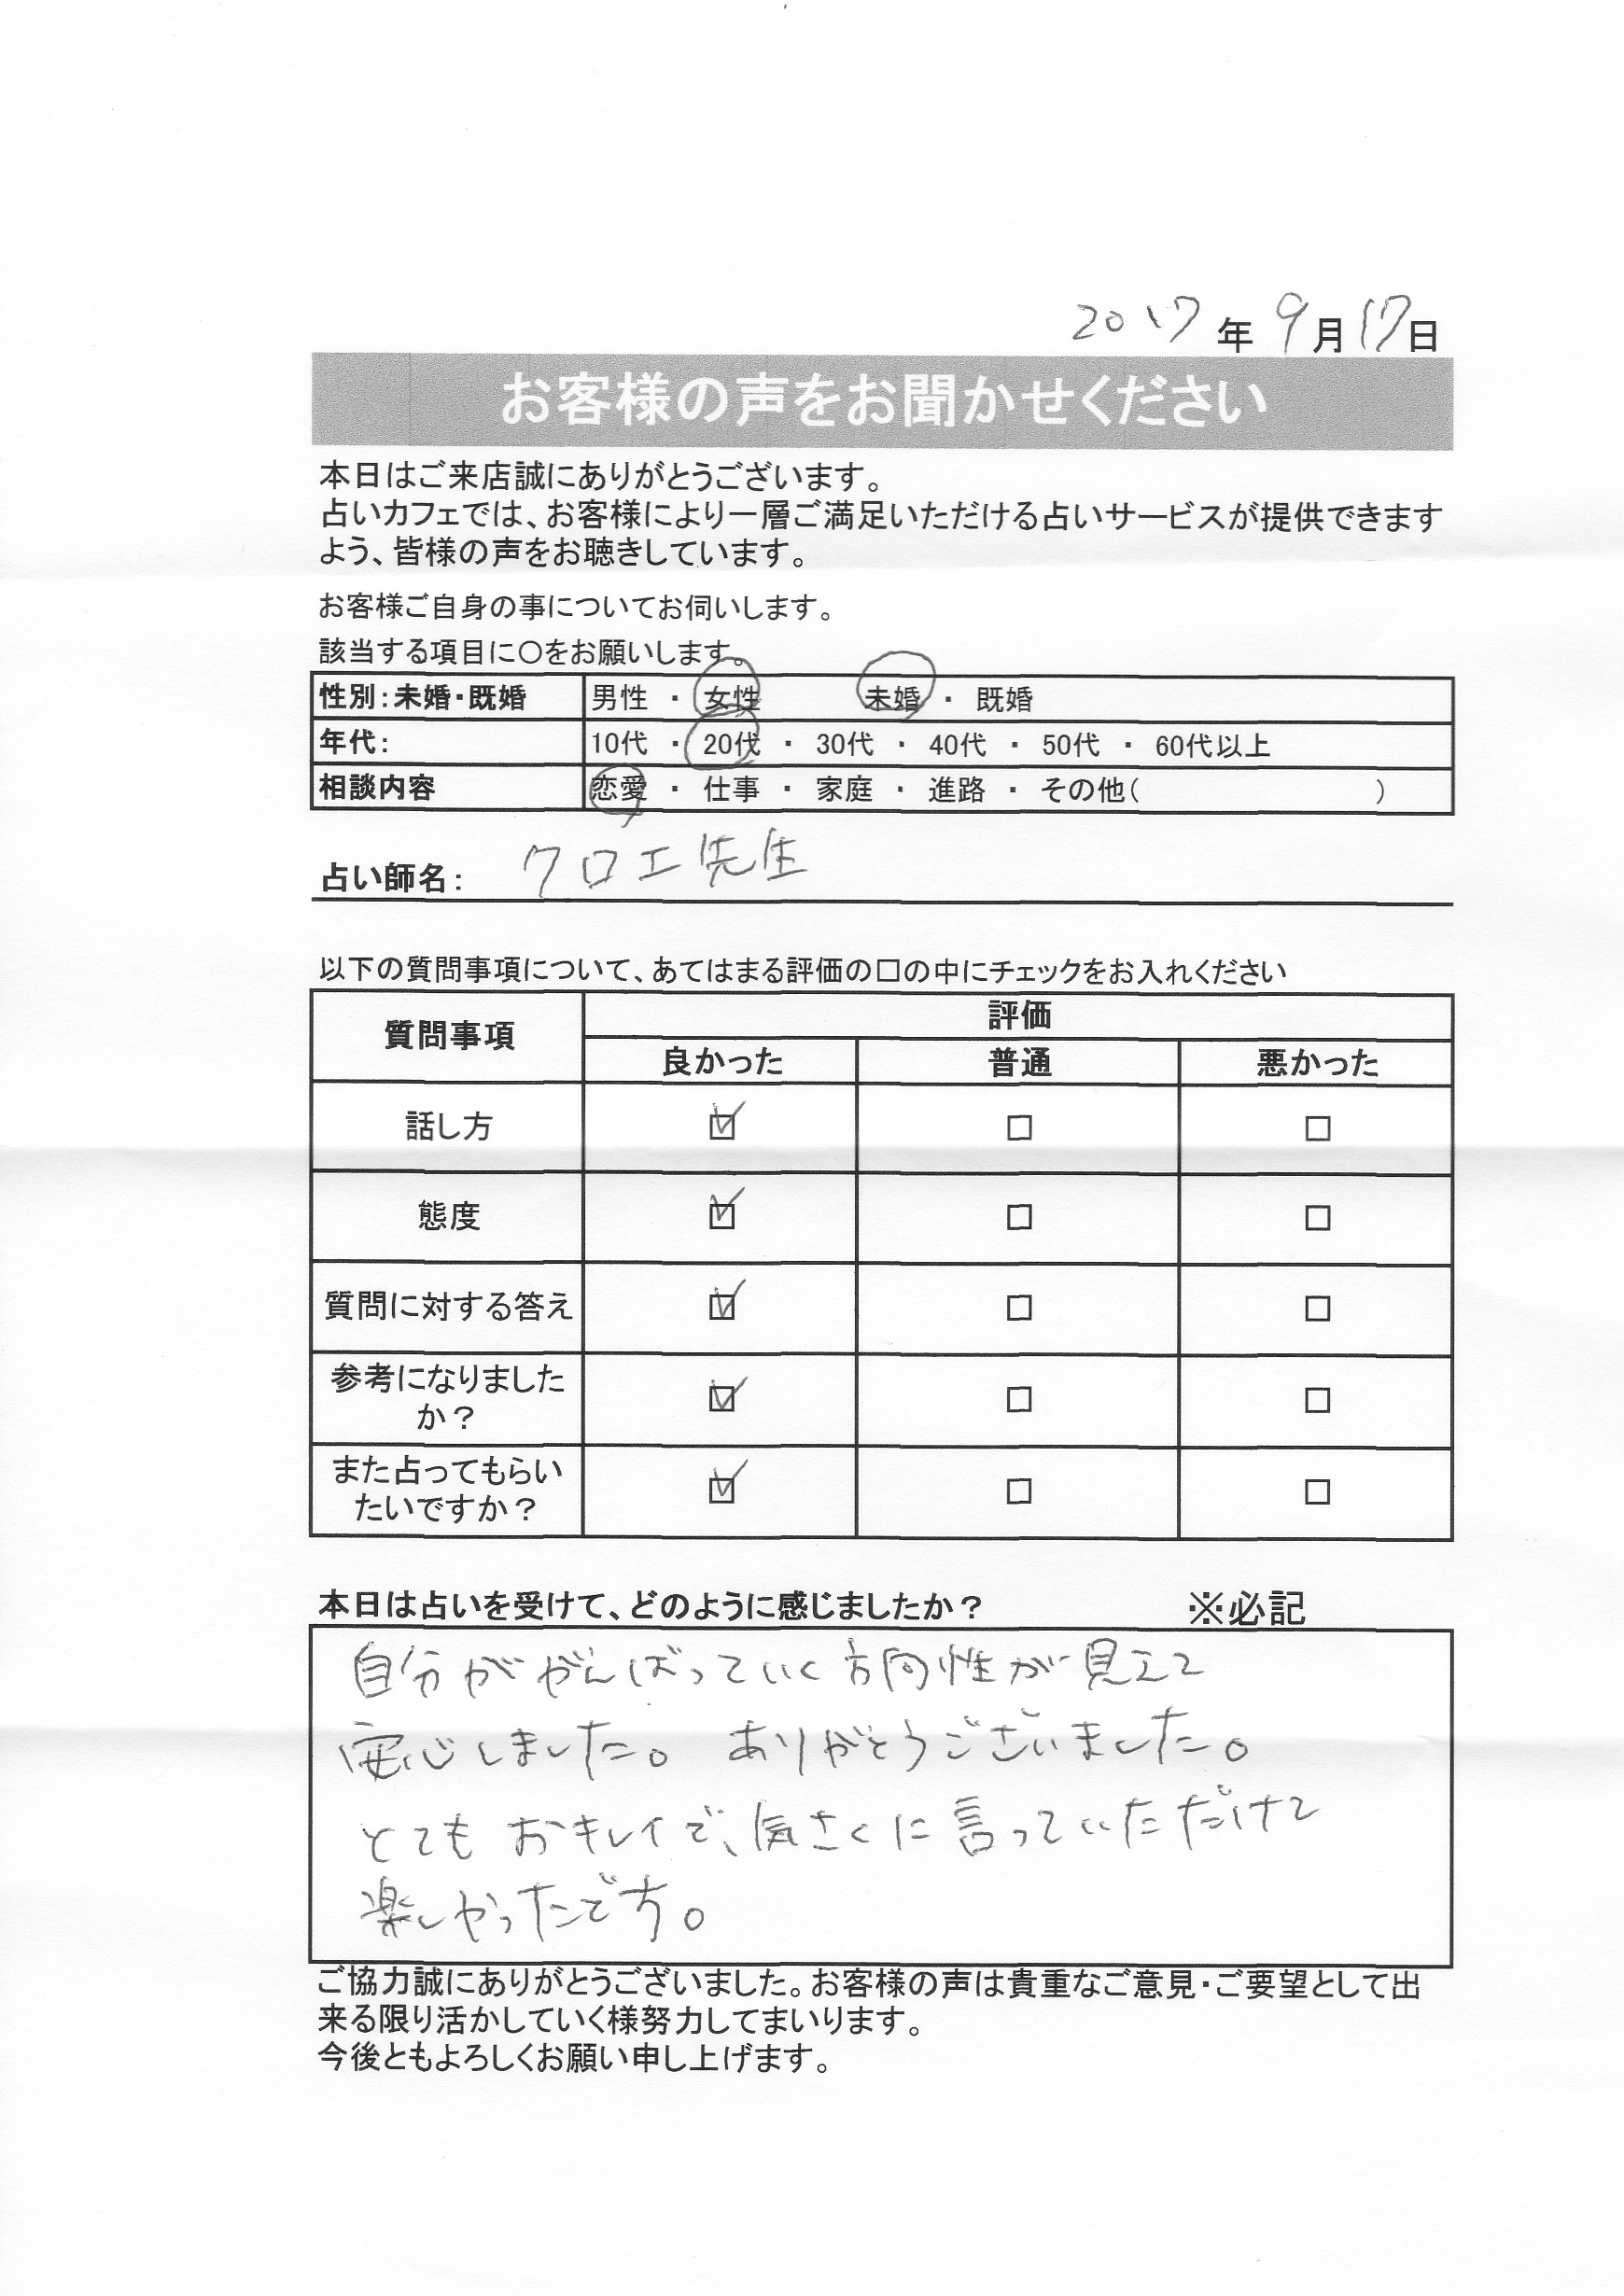 2017年9月17日
お客様の声をお聞かせください
本日はご来店誠にありがとうございます。
占いカフェでは、お客様により一層ご満足いただける占いサービスが提供できます
よう、皆様の声をお聴きしています。
お客様ご自身の事についてお伺いします。
該当する項目に○をお願いします。
性別:未婚・既婚 男性 ・ 女性 未婚 ・ 既婚
年代: 10代 ・ 20代 ・ 30代 ・ 40代 ・ 50代 ・ 60代以上
相談内容 恋愛 ・ 仕事 ・ 家庭 ・ 進路 ・ その他( )
占い師名: クロエ先生
以下の質問事項について、あてはまる評価の□の中にチェックをお入れください
質問事項 評価
良かった 普通 悪かった
話し方 ☑ □ □
態度 ☑ □ □
質問に対する答え ☑ □ □
参考になりました
か? ☑ □ □
また占ってもらい
たいですか? ☑ □ □
本日は占いを受けて、どのように感じましたか? ※必記
自分ががんばっていく方向性が見えて
安心しました。ありがとうございました。
とてもおキレイで、気さくに言っていただけて
楽しかったです。
ご協力誠にありがとうございました。お客様の声は貴重なご意見・ご要望として出
来る限り活かしていく様努力してまいります。
今後ともよろしくお願い申し上げます。